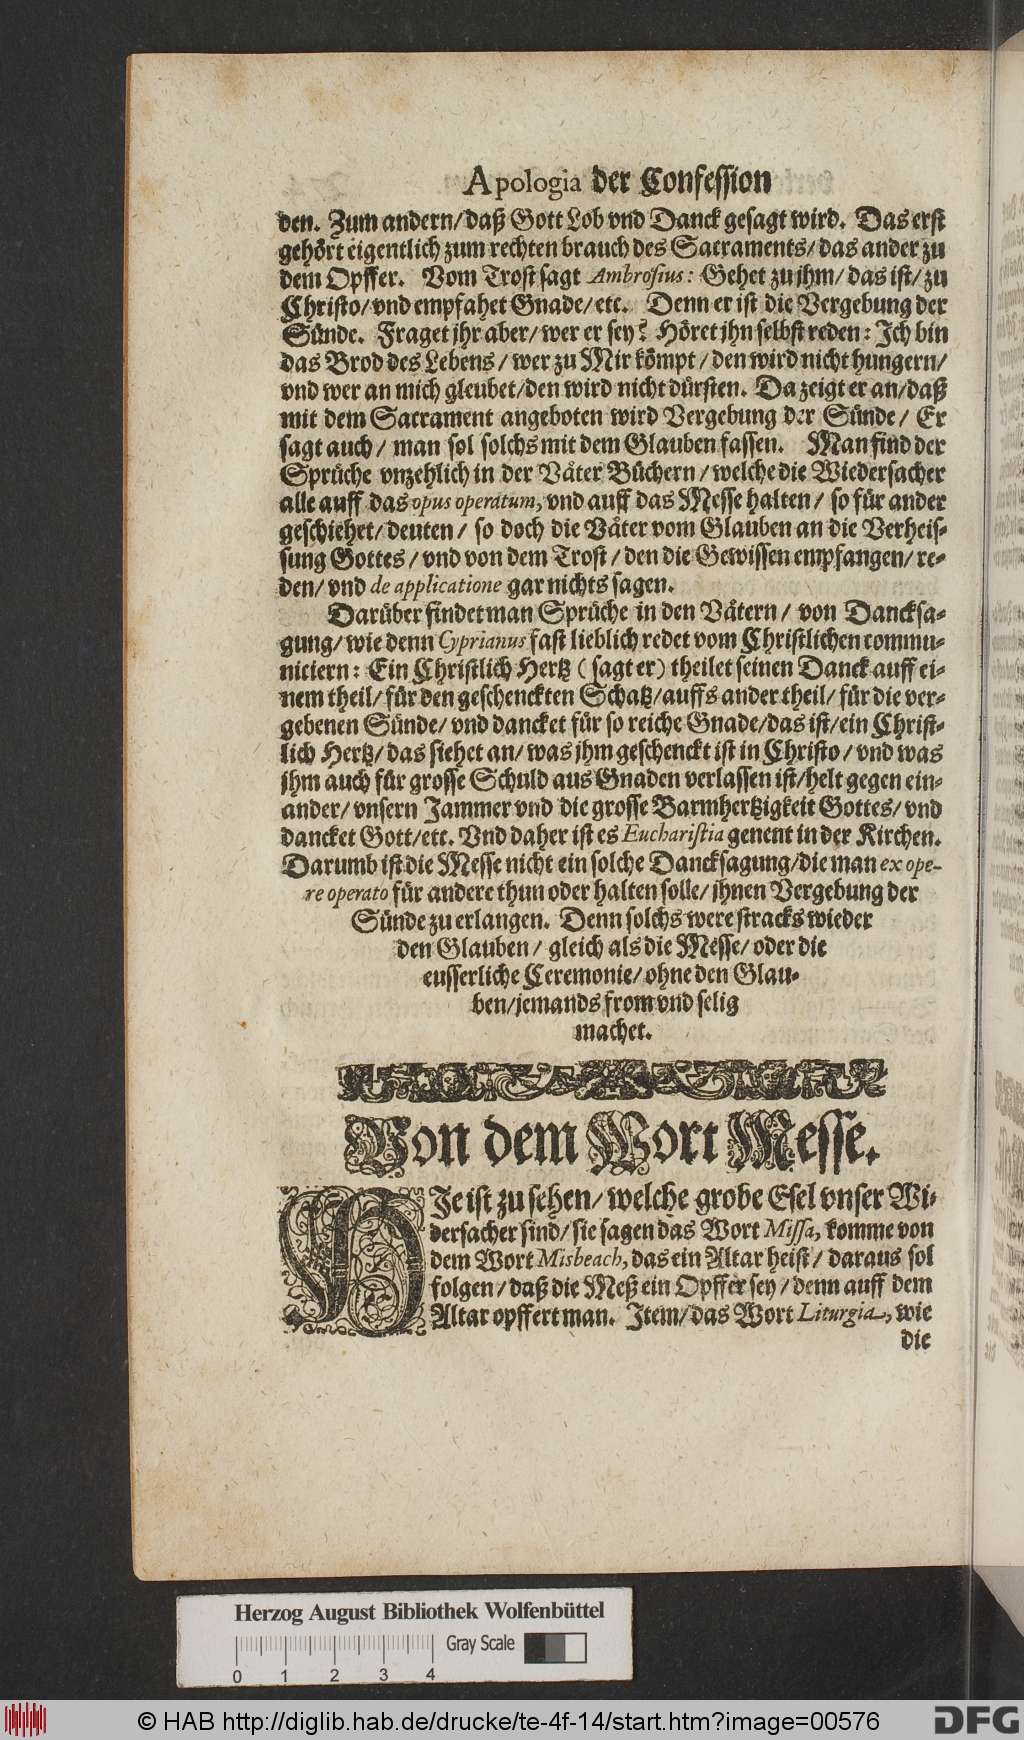 Apologia der Confession
den. Zum andern/ daß Gott Lob vnd Danck gesagt wird. Das erst
gehört eigentlich zum rechten brauch des Sacraments/ das ander zu
dem Opffer. Vom Trost sagt Ambrosius: Gehet zu jhm/ das ist/ zu
Christo/ vnd empfahet Gnade/ etc. Denn er ist die Vergebung der
Sünde. Fraget jhr aber/ wer er sey? Höret jhn selbst reden: Ich bin
das Brod des Lebens/ wer zu Mir kömpt/ den wird nicht hungern/
vnd wer an mich gleubet/ den wird nicht dürsten. Da zeigt er an/ daß
mit dem Sacrament angeboten wird Vergebung der Sünde/ Er
sagt auch/ man sol solchs mit dem Glauben fassen. Man find der
Sprüche vnzehlich in der Väter Büchern/ welche die Wiedersacher
alle auff das opus operatum, vnd auff das Messe halten/ so für ander
geschiehet/ deuten/ so doch die Väter vom Glauben an die Verheis-
sung Gottes/ vnd von dem Trost/ den die Gewissen empfangen/ re-
den/ vnd de applicatione gar nichts sagen.
Darüber findet man Sprüche in den Vätern/ von Dancksa-
gung/ wie denn Cyprianus fast lieblich redet vom Christlichen commu-
niciern: Ein Christlich Hertz (sagt er) theilet seinen Danck auff ei-
nem theil/ für den geschenckten Schatz/ auffs ander theil/ für die ver-
gebenen Sünde/ vnd dancket für so reiche Gnade/ das ist/ ein Christ-
lich Hertz/ das siehet an/ was jhm geschenckt ist in Christo/ vnd was
jhm auch für grosse Schuld aus Gnaden verlassen ist/ helt gegen ein-
ander/ vnsern Jammer vnd die grosse Barmhertzigkeit Gottes/ vnd
dancket Gott/ etc. Vnd daher ist es Eucharistia genent in der Kirchen.
Darumb ist die Messe nicht ein solche Dancksagung/ die man ex ope-
re operato für andere thun oder halten solle/ jhnen Vergebung der
Sünde zu erlangen. Denn solchs were stracks wieder
den Glauben/ gleich als die Messe/ oder die
eusserliche Ceremonie/ ohne den Glau-
ben/ jemands from vnd selig
machet.
Von dem Wort Messe.
HJe ist zu sehen/ welche grobe Esel vnser Wi-
dersacher sind/ sie sagen das Wort Missa, komme von
dem Wort Misbeach, das ein Altar heist/ daraus sol
folgen/ daß die Meß ein Opffer sey/ denn auff dem
Altar opffert man. Item/ das Wort Liturgia, wie
die
Herzog August Bibliothek Wolfenbüttel
Gray Scale
0 1 2 3 4
© HAB http://diglib.hab.de/drucke/te-4f-14/start.htm?image=00576
DFG